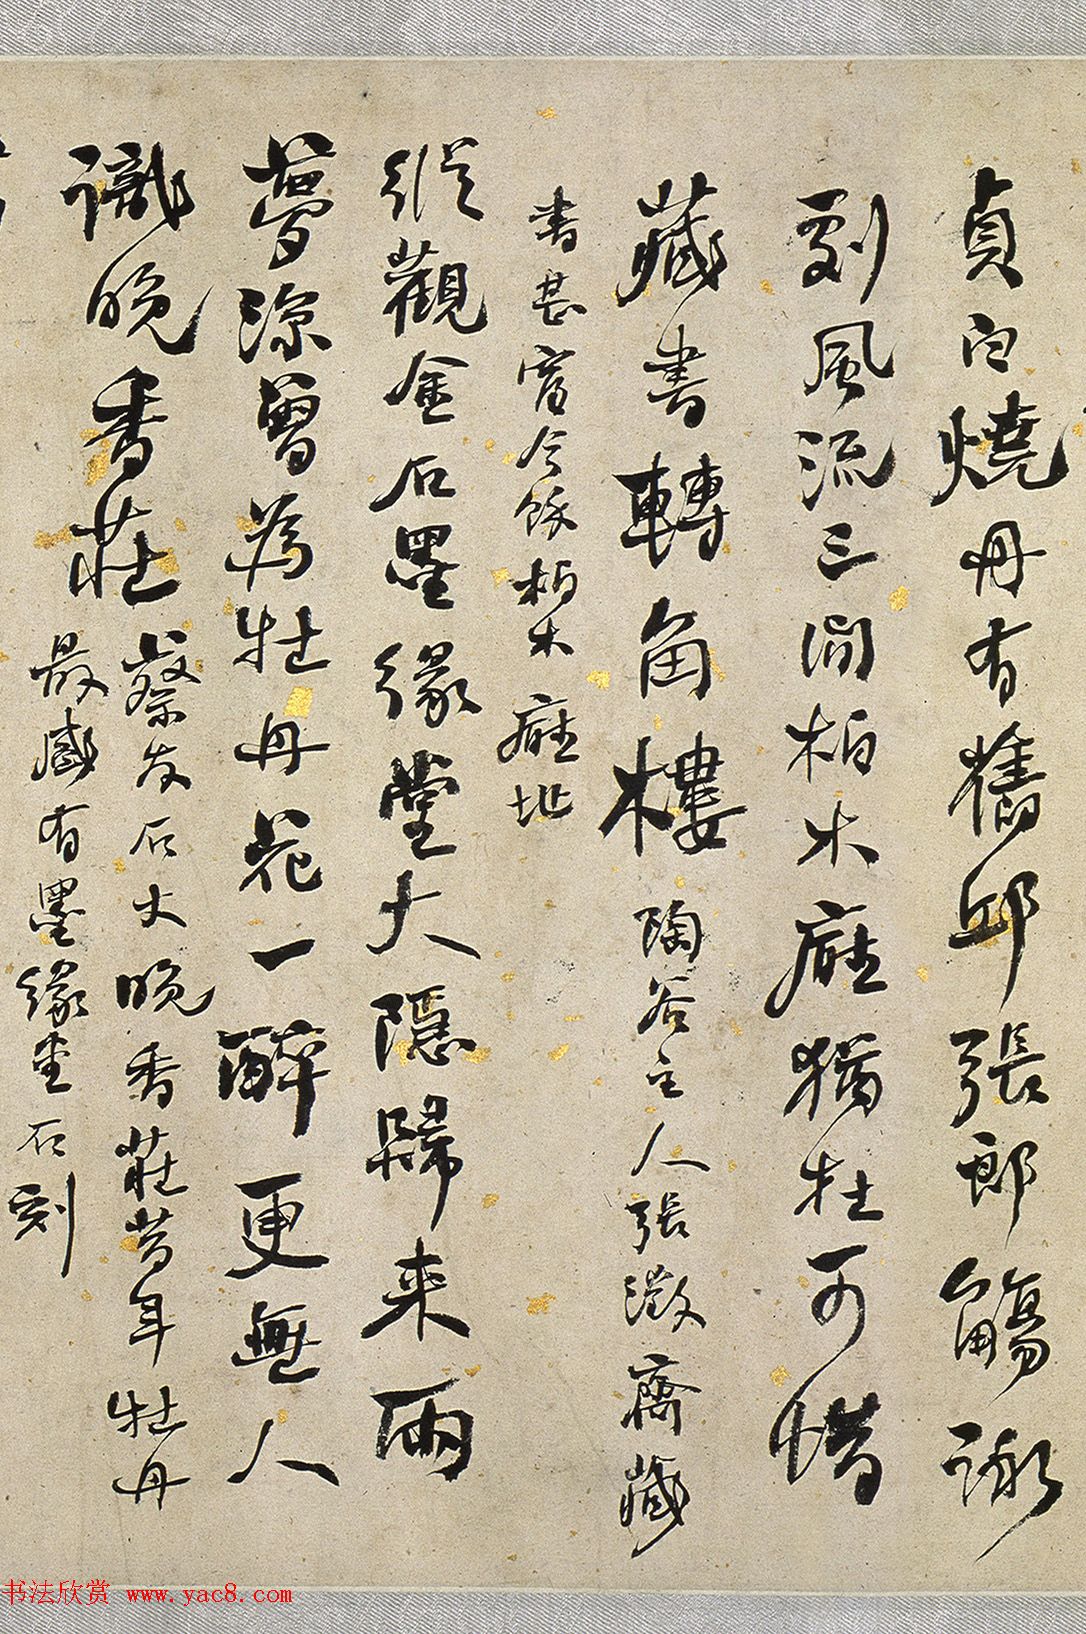 貞白燒丹有舊邱張郎觴詠
剧風流三間柏木廳猶在可惜
藏書轉角樓陶谷主人張澂齋藏
書甚富今餘柏木廳址
縱觀金石墨緣堂大隱歸来兩
夢涼曽為牡丹花一醉更無人
識晚香莊蔡友石大晚香莊昔年牡丹
最盛有墨緣堂石刻
书法欣赏 www.yac8.com